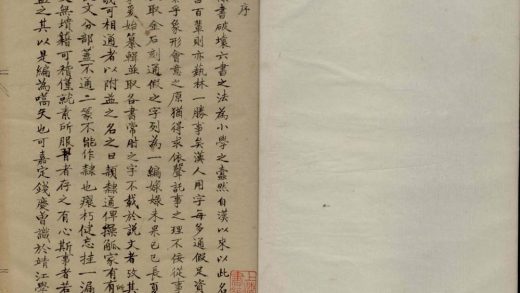 序
隸書破壞六書之法為小學之蠹然自漢以來以此名
者百輩則亦藝林一勝事矣漢人用字每多通假足資
乎象形會意之原猶得求依聲託事之理不佞從事
取金石刻通假之字列為一編媄媄未果已巳長夏
夏始纂輯並取各書常附之字不載於說文者攷其
或可相通者以附益之名之曰類隸通俾操觚家有所
文分部蓋不通二篆不能作隸也癈朽健忘挂一漏
無墳籍可稽僅就素所服習者存之有心斯事者若
益之其以是編為嚆矢也可嘉定錢慶曾識於靖江學